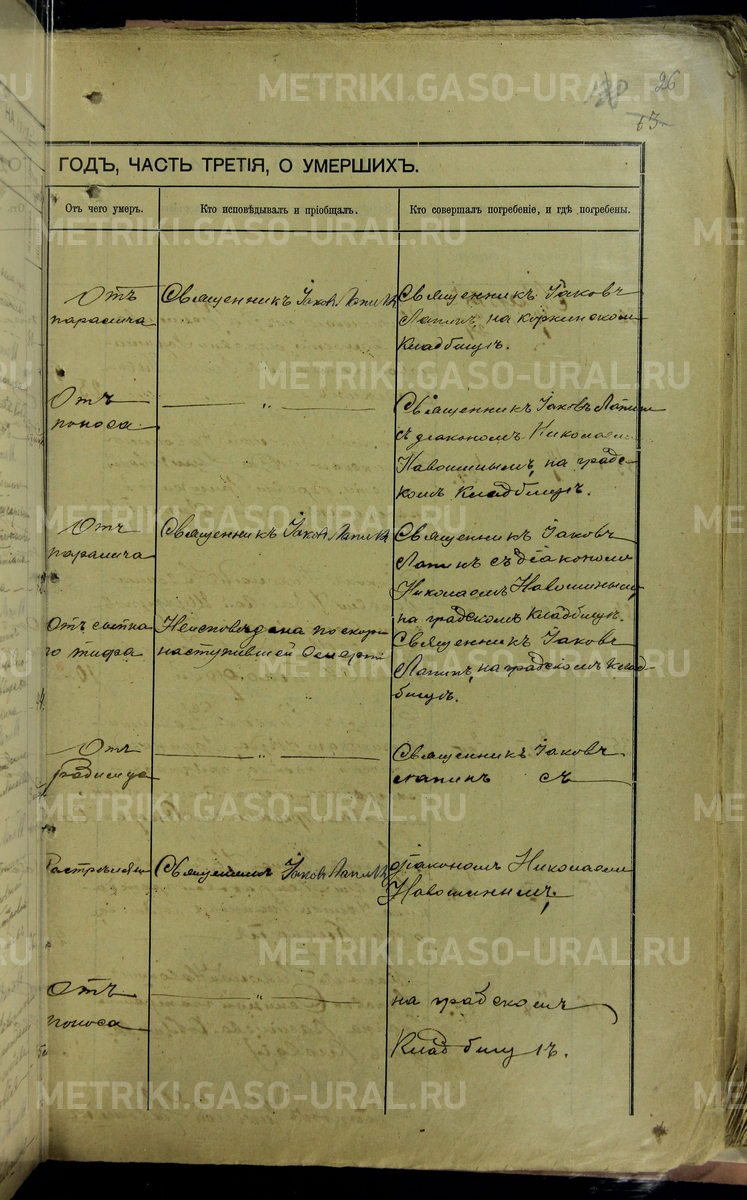 26
63
ГОДЪ, ЧАСТЬ ТРЕТІЯ, О УМЕРШИХЪ.
Отъ чего умеръ.
Кто исповѣдывалъ и пріобщалъ.
Кто совершалъ погребеніе, и гдѣ погребены.
Отъ
паралича
Священникъ Іаковъ Лапинъ
Священникъ Іаковъ
Лапинъ, на коркинскомъ
Кладбищѣ.
Отъ
поноса
— " —
Священникъ Іаковъ Лапинъ
съ діакономъ Николаемъ
Навошинымъ, на градс-
комъ Кладбищѣ.
Отъ
паралича
Священникъ Іаковъ Лапинъ
Священникъ Іаковъ
Лапинъ съ Діакономъ
Николаемъ Навошинымъ,
на градскомъ Кладбищѣ.
Отъ сыпна
го тифа
Неисповѣдена по скоро
наступившей смерти
Священникъ Іаковъ
Лапинъ, на градскомъ Клад-
бищѣ.
Отъ
— " —
Священникъ Іаковъ
Лапинъ съ
Разстрѣлянъ
Священникъ Іаковъ Лапинъ
діакономъ Николаемъ
Навошинымъ,
Отъ
поноса
— " —
на градскомъ
Кладбищѣ.
METRIKI.GASO-URAL.RU